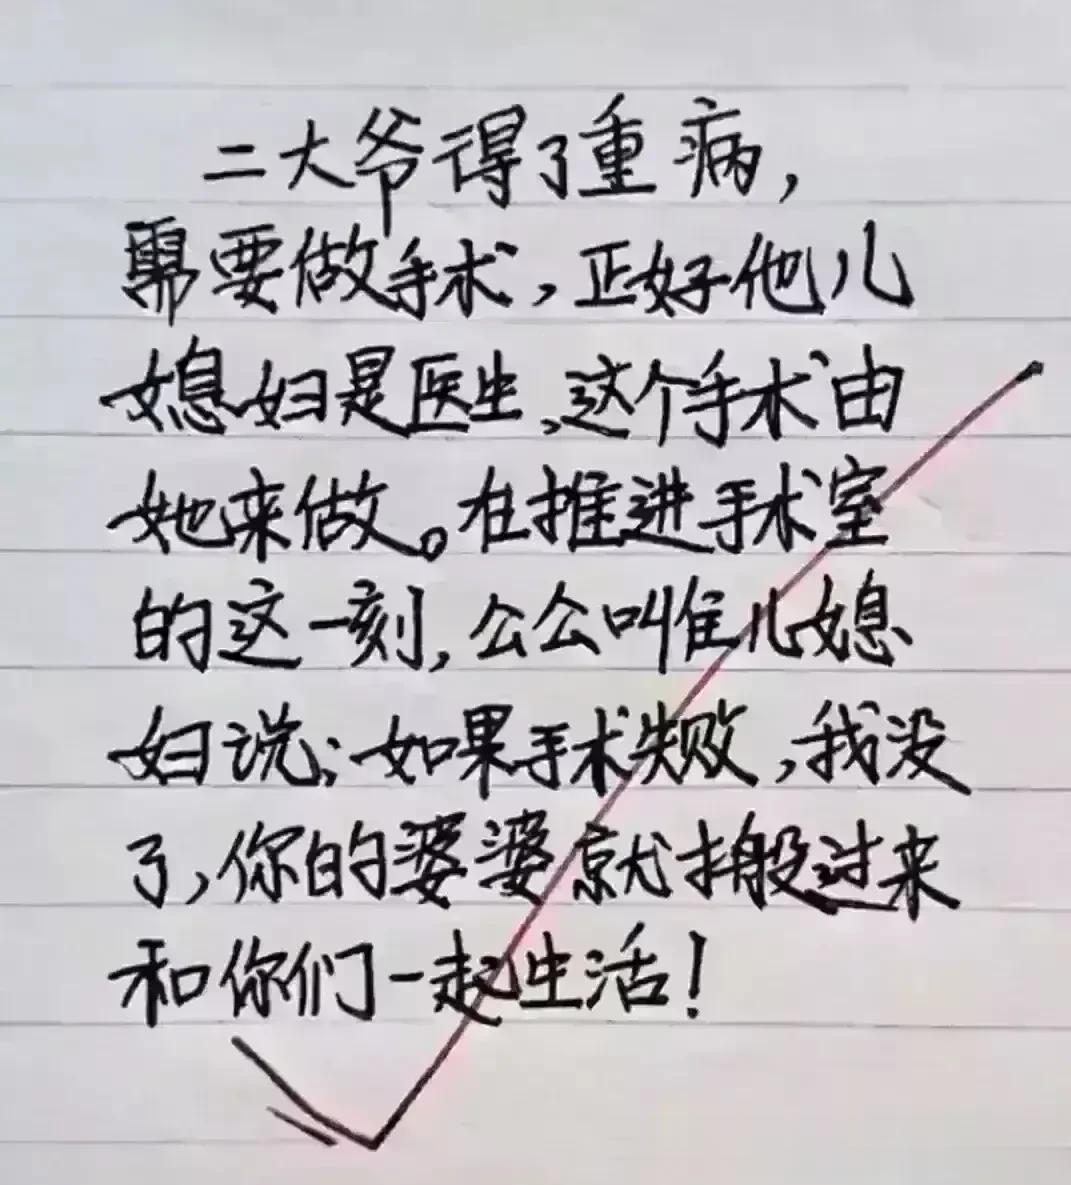 二大爷得了重病,
需要做手术,正好他儿
媳妇是医生,这个手术由
她来做。在推进手术室
的这一刻,公公叫住儿媳
妇说;如果手术失败,我没
了,你的婆婆就搬过来
和你们一起生活!